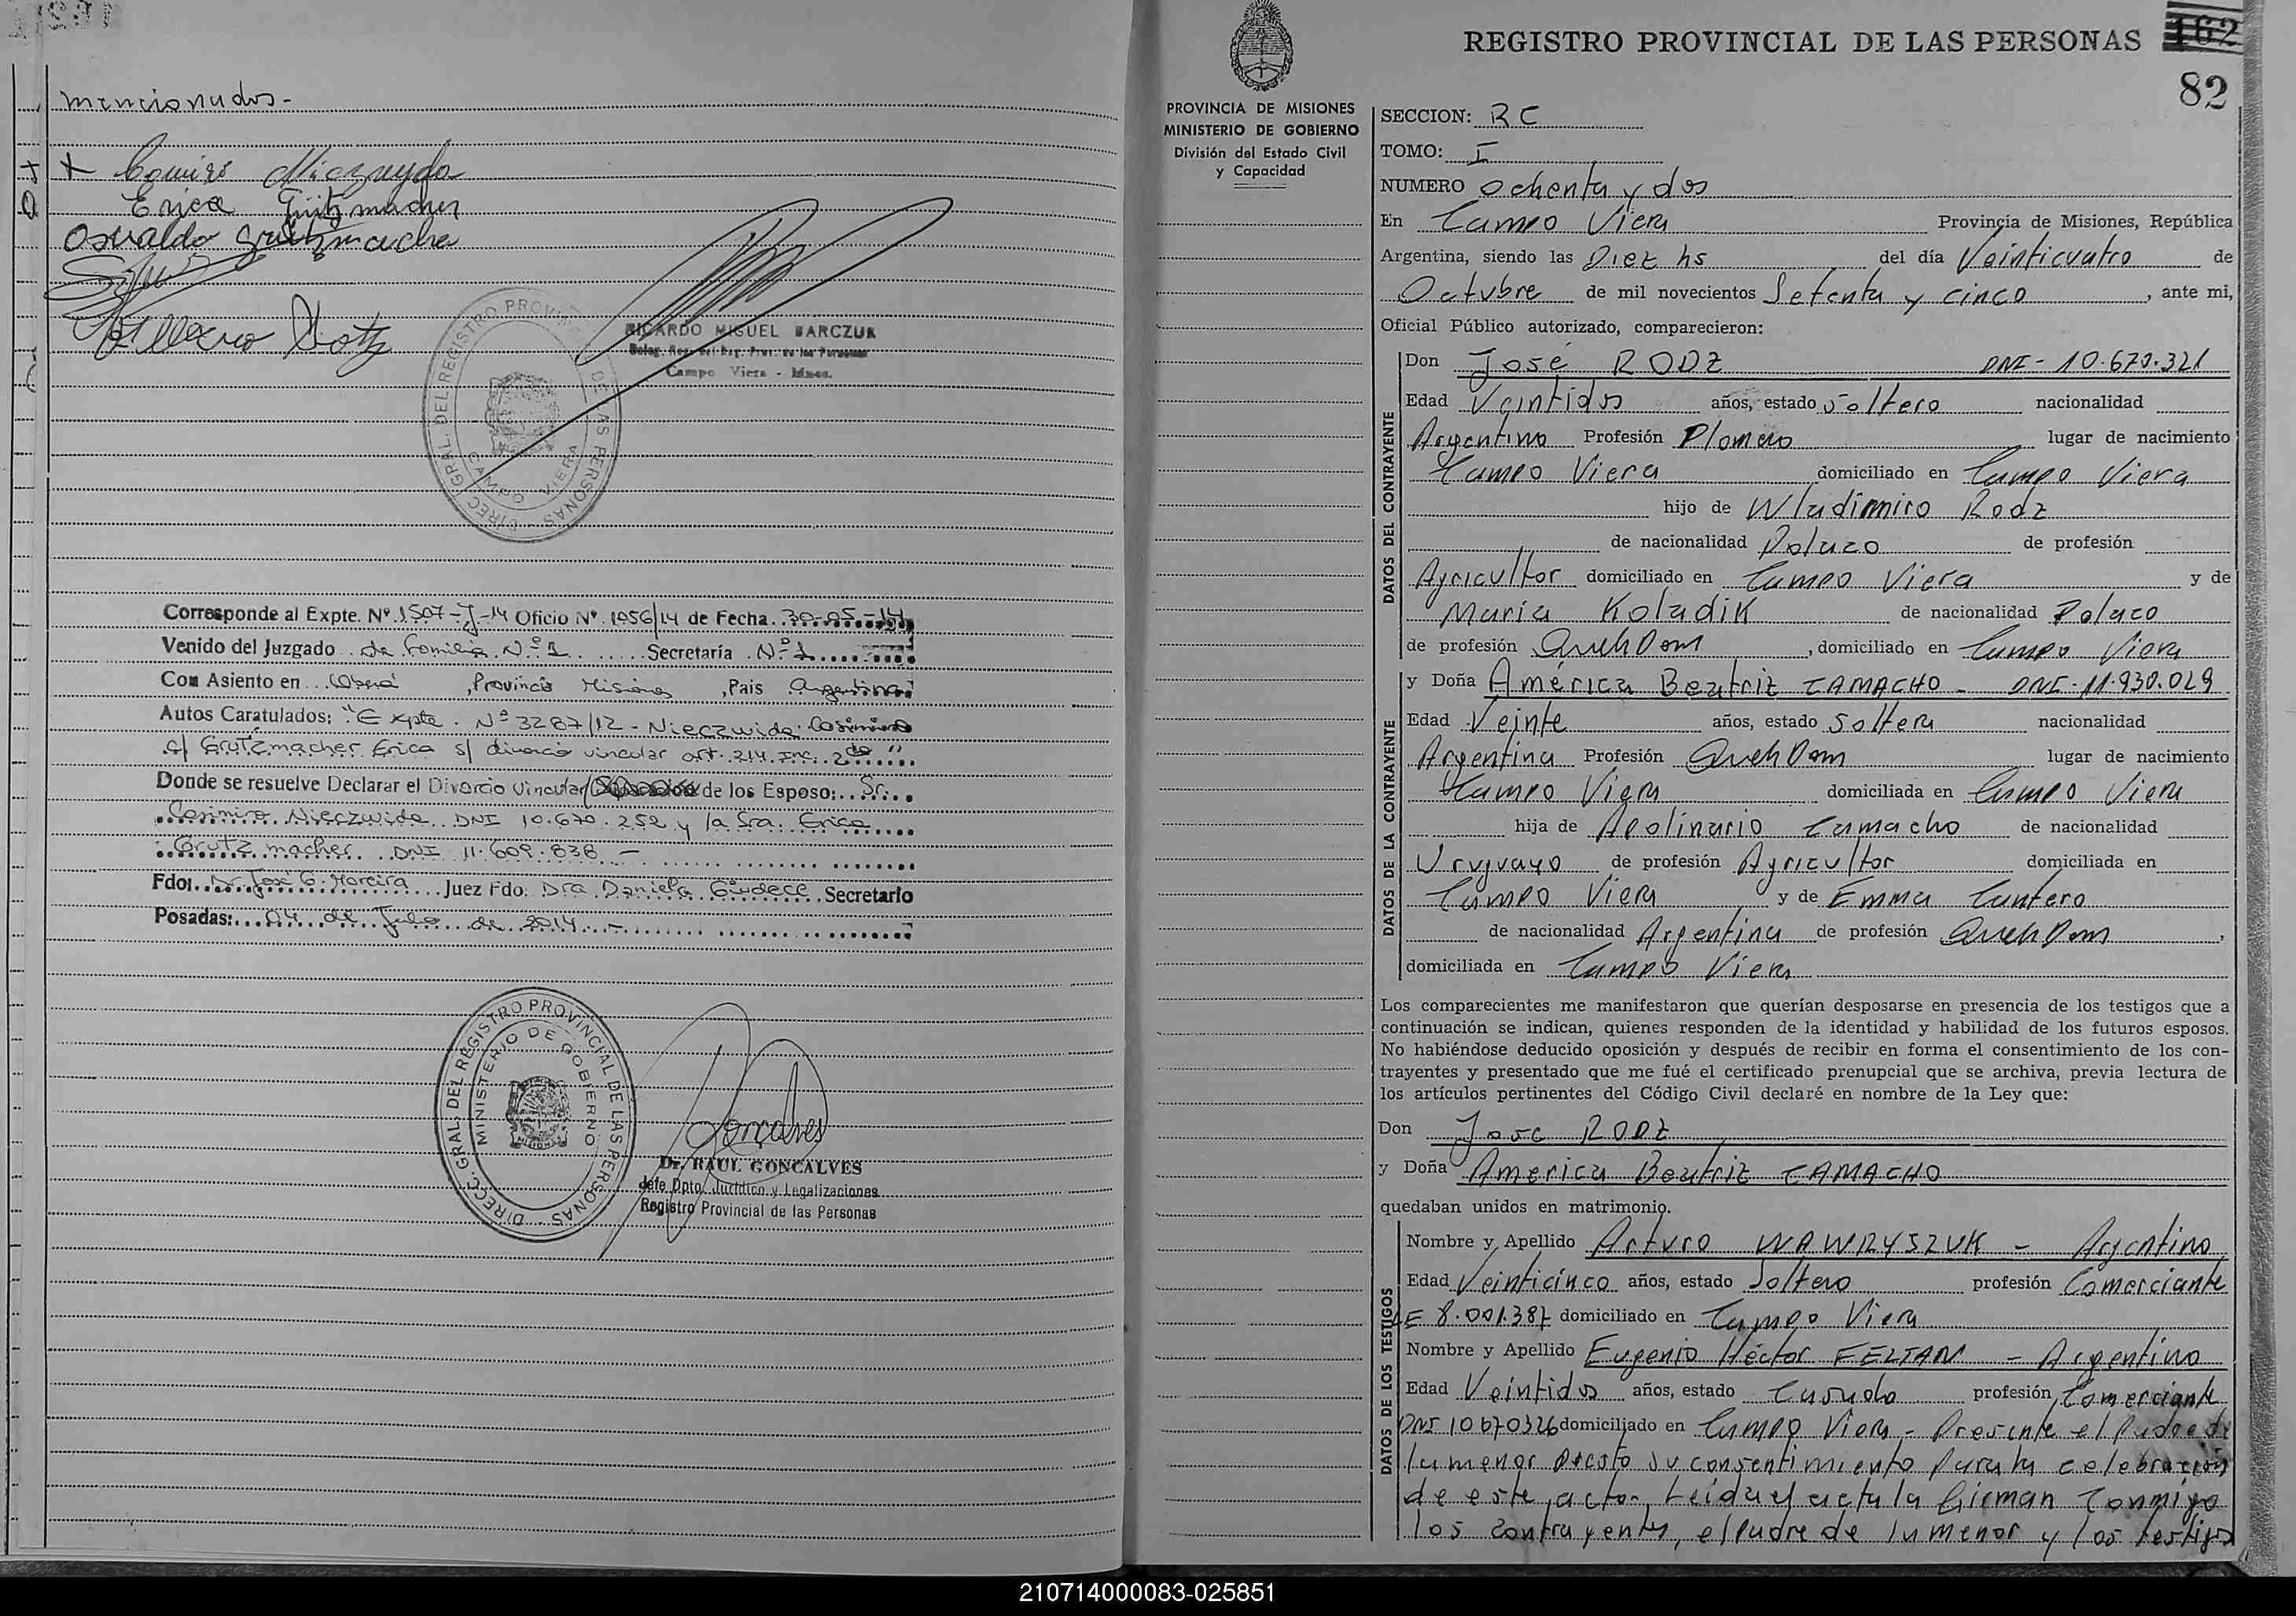 mencionados-
Erica Grützmacher
Osvaldo Grützmacher
DIREC. GRAL. DEL REGISTRO PROVINCIAL DE LAS PERSONAS
CAMPO VIERA
RICARDO MIGUEL BARCZUK
Campo Viera - Mnes.
Corresponde al Expte. Nº 1507-J-14 Oficio Nº 1056/14 de Fecha 30-05-14
Venido del Juzgado de Familia Nº 1 Secretaría Nº 1
Con Asiento en Oberá, Provincia Misiones, Pais Argentina
Autos Caratulados: "Expte. Nº 3287/12 - Nieczwida Casimiro
c/ Grutzmacher Erica s/ divorcio vincular art. 214 inc. 2do"
Donde se resuelve Declarar el Divorcio Vincular de los Esposo: Sr.
Casimiro Nieczwida DNI 10.670.252 y la Sra. Erica
Grutzmacher DNI 11.609.838 -
Fdo: Dr. José G. Moreira Juez Fdo: Dra Daniela Giudece Secretario
Posadas: 04 de Julio de 2014 -
DIRECC. GRAL. DEL REGISTRO PROVINCIAL DE LAS PERSONAS
MINISTERIO DE GOBIERNO
MISIONES
Goncalves
Dr. RAUL GONCALVES
Jefe Dpto. Jurídico y Legalizaciones
Registro Provincial de las Personas
REGISTRO PROVINCIAL DE LAS PERSONAS 162
82
PROVINCIA DE MISIONES
MINISTERIO DE GOBIERNO
División del Estado Civil
y Capacidad
SECCION: RC
TOMO: I
NUMERO Ochenta y dos
En Campo Viera Provincia de Misiones, República
Argentina, siendo las Diez hs del día Veinticuatro de
Octubre de mil novecientos Setenta y cinco, ante mi,
Oficial Público autorizado, comparecieron:
DATOS DEL CONTRAYENTE
Don José RODZ DNI - 10.670.321
Edad Veintidos años, estado soltero nacionalidad
Argentino Profesión Plomero lugar de nacimiento
Campo Viera domiciliado en Campo Viera
hijo de Wladimiro Rodz
de nacionalidad Polaco de profesión
Agricultor domiciliado en Campo Viera y de
Maria Koladik de nacionalidad Polaco
de profesión QuehDom, domiciliado en Campo Viera
DATOS DE LA CONTRAYENTE
y Doña América Beatriz CAMACHO - DNI - 11.930.029
Edad Veinte años, estado soltera nacionalidad
Argentina Profesión QuehDom lugar de nacimiento
Campo Viera domiciliada en Campo Viera
hija de Apolinario Camacho de nacionalidad
Uruguayo de profesión Agricultor domiciliada en
Campo Viera y de Emma Cantero
de nacionalidad Argentina de profesión QuehDom,
domiciliada en Campo Viera
Los comparecientes me manifestaron que querían desposarse en presencia de los testigos que a
continuación se indican, quienes responden de la identidad y habilidad de los futuros esposos.
No habiéndose deducido oposición y después de recibir en forma el consentimiento de los con-
trayentes y presentado que me fué el certificado prenupcial que se archiva, previa lectura de
los artículos pertinentes del Código Civil declaré en nombre de la Ley que:
Don José RODZ
y Doña America Beatriz CAMACHO
quedaban unidos en matrimonio.
DATOS DE LOS TESTIGOS
Nombre y Apellido Arturo WAWRYSZUK - Argentino
Edad Veinticinco años, estado Soltero profesión Comerciante
LE 8.001.387 domiciliado en Campo Viera
Nombre y Apellido Eugenio Héctor FELTAN - Argentino
Edad Veintidos años, estado Casado profesión Comerciante
DNI 10670326 domiciliado en Campo Viera - Presente el Padre de
la menor Presto su consentimiento Para la celebración
de este acto, Leida el acta la firman Conmigo
los Contrayentes, el Padre de la menor y los testigos
210714000083-025851